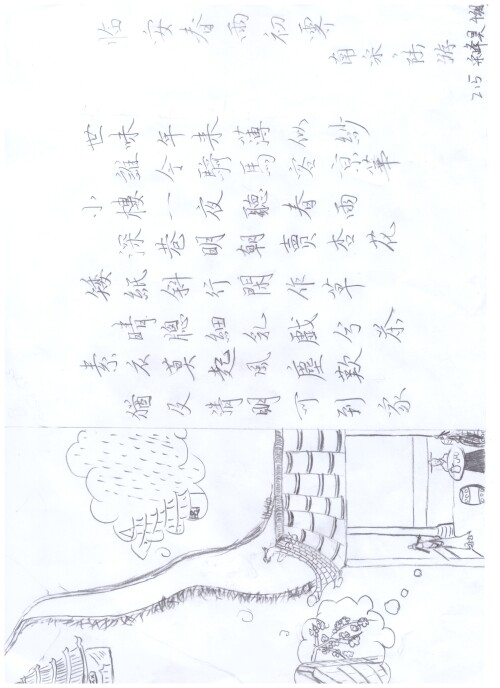 临安春雨初霁
南宋 陆游
世味年来薄似紗
誰令騎馬客京華
小樓一夜聽春雨
深巷明朝賣杏花
矮紙斜行閑作草
晴牕細乳戲分茶
素衣莫起風塵歎
猶及清明可到家
215